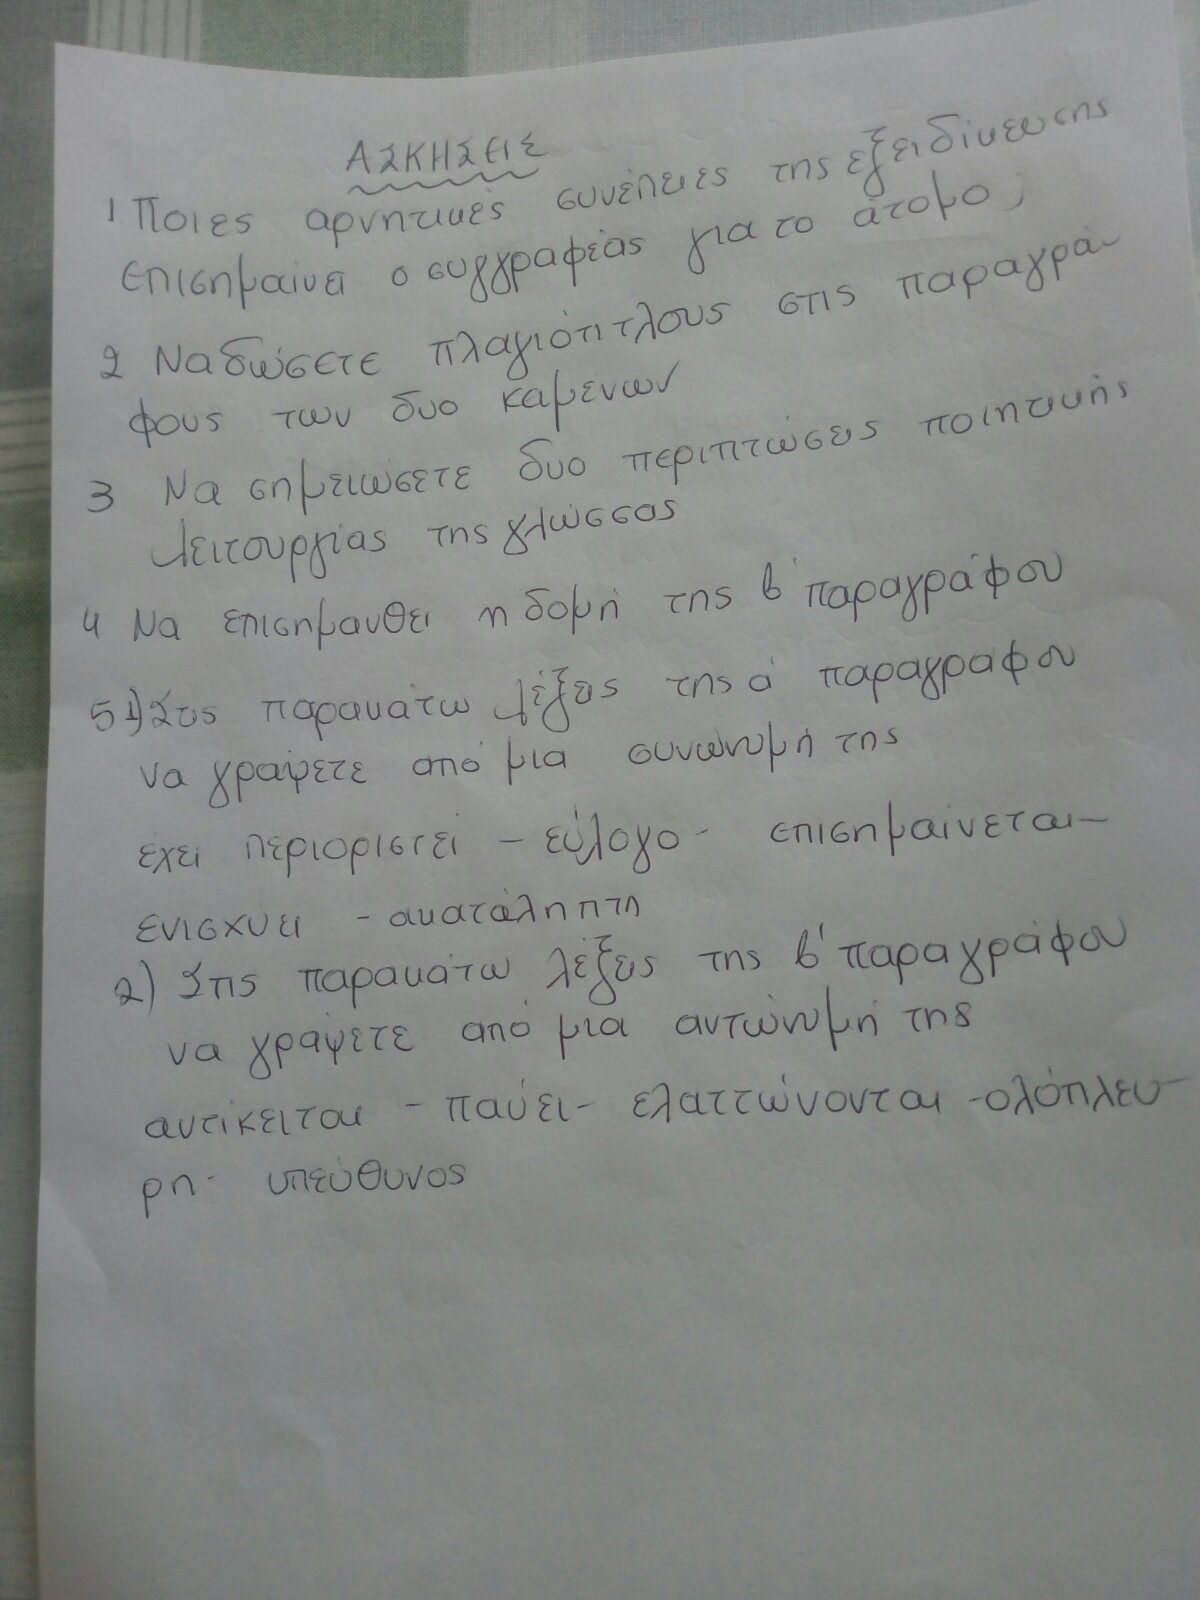 ΑΣΚΗΣΕΙΣ
1 Ποιες αρνητικές συνέπειες της εξειδίκευσης
επισημαίνει ο συγγραφέας για το άτομο;
2 Να δώσετε πλαγιότιτλους στις παραγρά-
φους των δυο καμένων
3 Να σημειώσετε δυο περιπτώσεις ποιητικής
λειτουργίας της γλώσσας
4 Να επισημανθεί η δομή της β' παραγράφου
5 1) Στις παρακάτω λέξεις της α' παραγράφου
να γράψετε από μια συνώνυμή της
έχει περιοριστεί - εύλογο - επισημαίνεται -
ενισχύει - ακατάληπτη
2) Στις παρακάτω λέξεις της β' παραγράφου
να γράψετε από μια αντώνυμή της
αντίκειται - παύει - ελαττώνονται - ολόπλευ-
ρη - υπεύθυνος